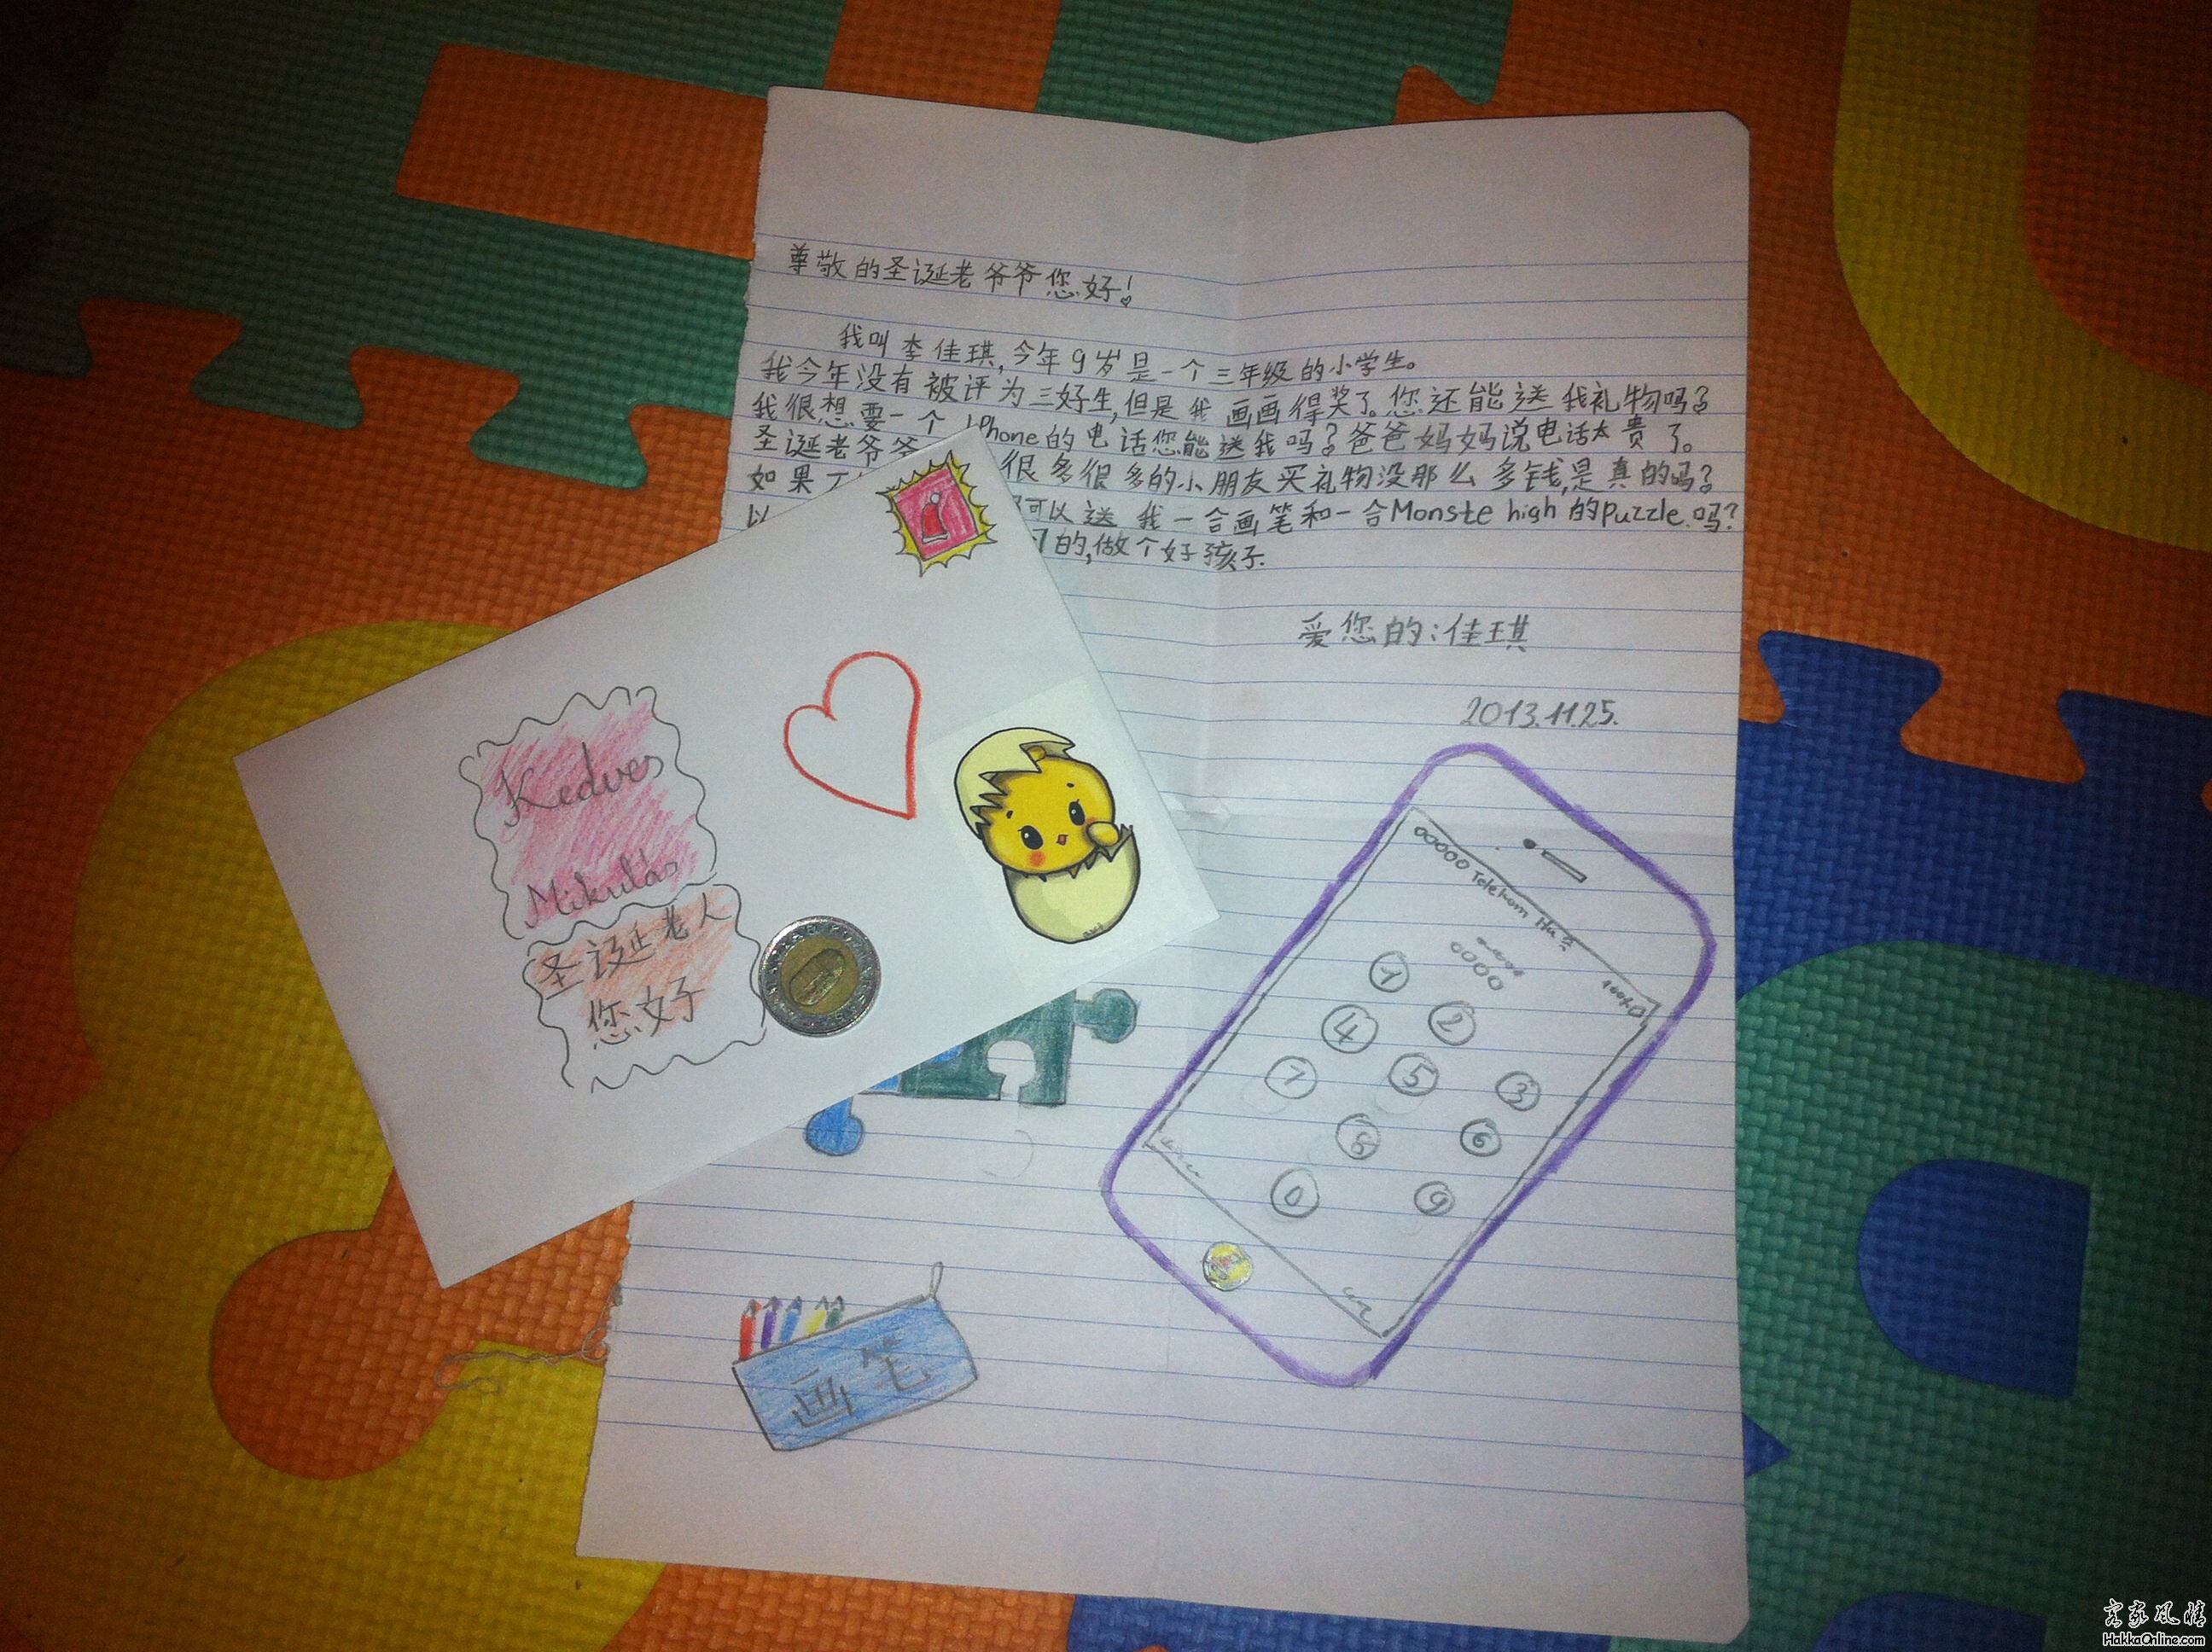 尊敬的圣诞老爷爷您好!
我叫李佳琪,今年9岁是一个三年级的小学生。
我今年没有被评为三好生,但是我画画得奖了。您还能送我礼物吗?
我很想要一个iPhone的电话您能送我吗?爸爸妈妈说电话太贵了。
圣诞老爷爷 很多很多的小朋友买礼物没那么多钱,是真的吗?
如果 可以送我一合画笔和一合Monste high的Puzzle.吗?
以 的,做个好孩子.
爱您的:佳琪
2013.11.25.
Kedves
Mikulás
圣诞老人
您好
Telekom Hu
100%
1
2
3
4
5
6
7
8
9
0
画笔
客家风情
HakkaOnline.com